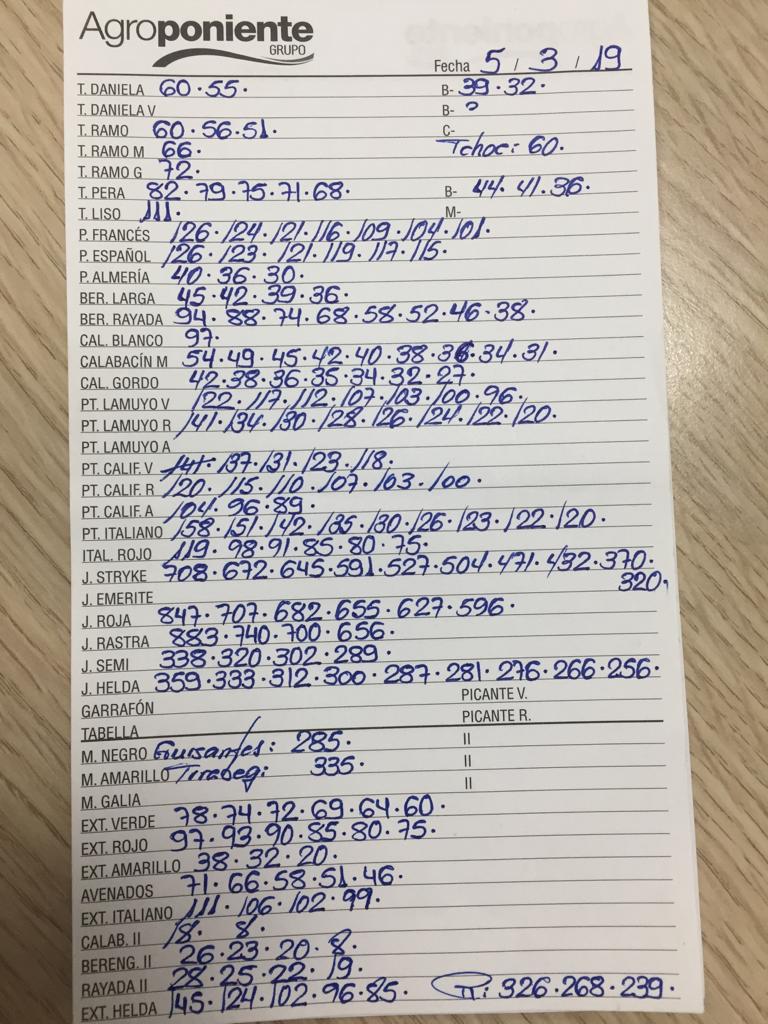 Agroponiente
GRUPO
Fecha 5 / 3 / 19
T. DANIELA 60·55· B- 39·32·
T. DANIELA V B-
T. RAMO 60·56·51· C-
T. RAMO M 66· Tchoc: 60·
T. RAMO G 72·
T. PERA 82·79·75·71·68· B- 44·41·36·
T. LISO 111· M-
P. FRANCÉS 126·124·121·116·109·104·101·
P. ESPAÑOL 126·123·121·119·117·115·
P. ALMERÍA 40·36·30·
BER. LARGA 45·42·39·36·
BER. RAYADA 94·88·74·68·58·52·46·38·
CAL. BLANCO 97·
CALABACÍN M 54·49·45·42·40·38·36·34·31·
CAL. GORDO 42·38·36·35·34·32·27·
PT. LAMUYO V 122·117·112·107·103·100·96·
PT. LAMUYO R 141·134·130·128·126·124·122·120·
PT. LAMUYO A
PT. CALIF. V 137·131·123·118·
PT. CALIF. R 120·115·110·107·103·100·
PT. CALIF. A 104·96·89·
PT. ITALIANO 158·151·142·135·130·126·123·122·120·
ITAL. ROJO 119·98·91·85·80·75·
J. STRYKE 708·672·645·591·527·504·471·432·370·
320·
J. EMERITE
J. ROJA 847·707·682·655·627·596·
J. RASTRA 883·740·700·656·
J. SEMI 338·320·302·289·
J. HELDA 359·333·312·300·287·281·276·266·256·
GARRAFÓN PICANTE V.
TABELLA PICANTE R.
M. NEGRO 285· II
M. AMARILLO 335· II
M. GALIA II
EXT. VERDE 78·74·72·69·64·60·
EXT. ROJO 97·93·90·85·80·75·
EXT. AMARILLO 38·32·20·
AVENADOS 71·66·58·51·46·
EXT. ITALIANO 111·106·102·99·
CALAB. II 18· 8·
BERENG. II 26·23·20·8·
RAYADA II 28·25·22·19·
EXT. HELDA 145·124·102·96·85· II: 326·268·239·